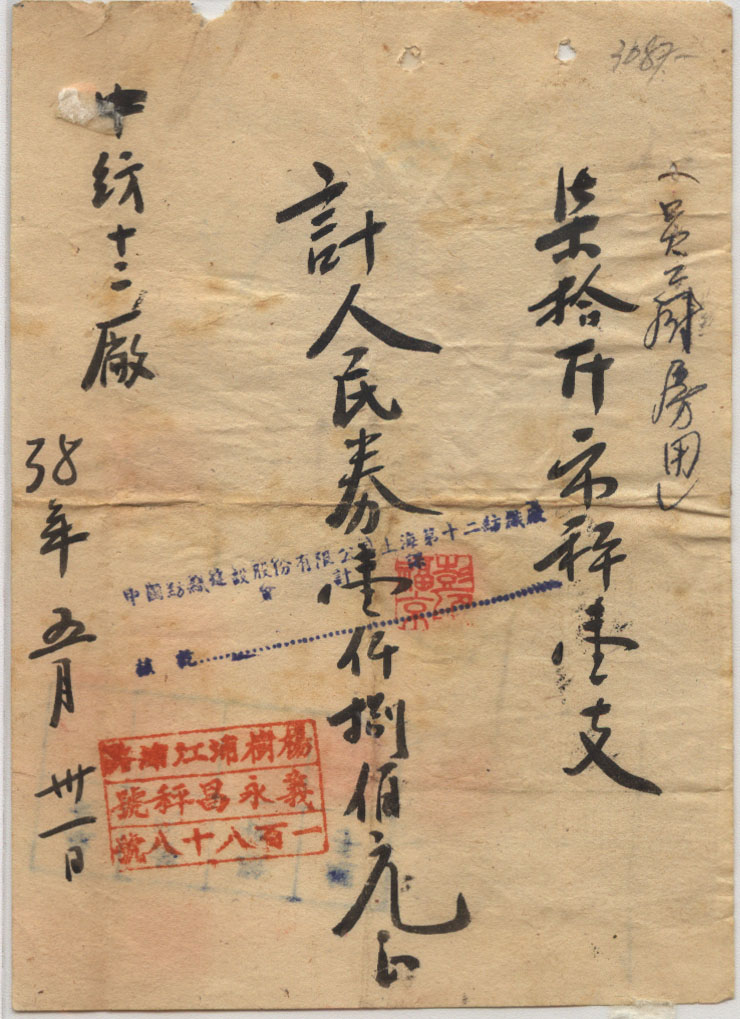 3087-
員厨房用
柒拾斤市秤壹支
計人民券壹仟捌佰元正
中紡十二廠
38年五月卅一日
中國紡織建設股份有限公司上海第十二紡織廠
會計課
核訖
楊樹浦江浦路
義永昌秤號
一百八十八號